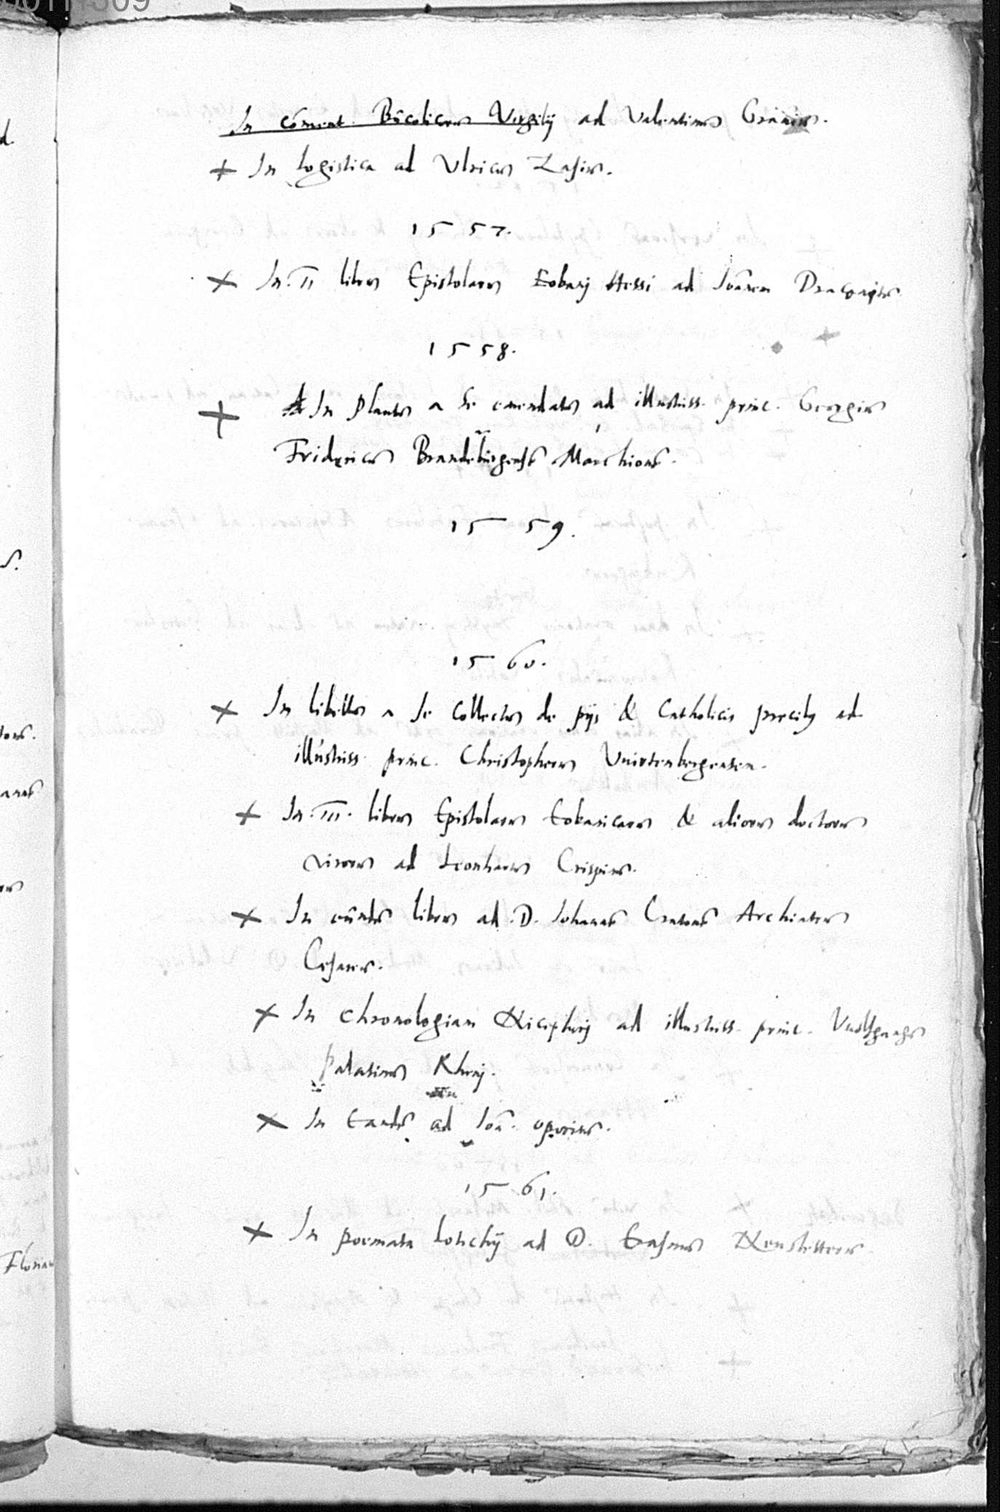 In com̄ent. Bucolicorum Virgilij ad Valentinum
+ In logistica ad Ulricum Zasium.
1557.
+ In II librum Epistolarum Eobani Hessi ad Joānem Draconitem
1558.
+ In Plautum a se emendatum ad illustriss. princ. Georgium
Fridericum Brandēburgensem Marchionem.
1559.
1560.
+ In libellum a se collectum de pijs & Catholicis precibus ad
illustriss. princ. Christophorum Wirtenbergensem.
+ In III. librum Epistolarum Eobanicarum & aliorum doctorum
virorum ad Leonhartum Crispinum.
+ In eūndem librum ad D. Johannem Cratonem Archiatrum
Cesareum.
+ In chronologiam Nicephori ad illustriss. princ. Wolfgangum
Palatinum Rheni.
+ In Eandem ad Joā. oporinum.
1561.
+ In poemata Lotichij ad D. Erasmum Neustetterum.
Florian